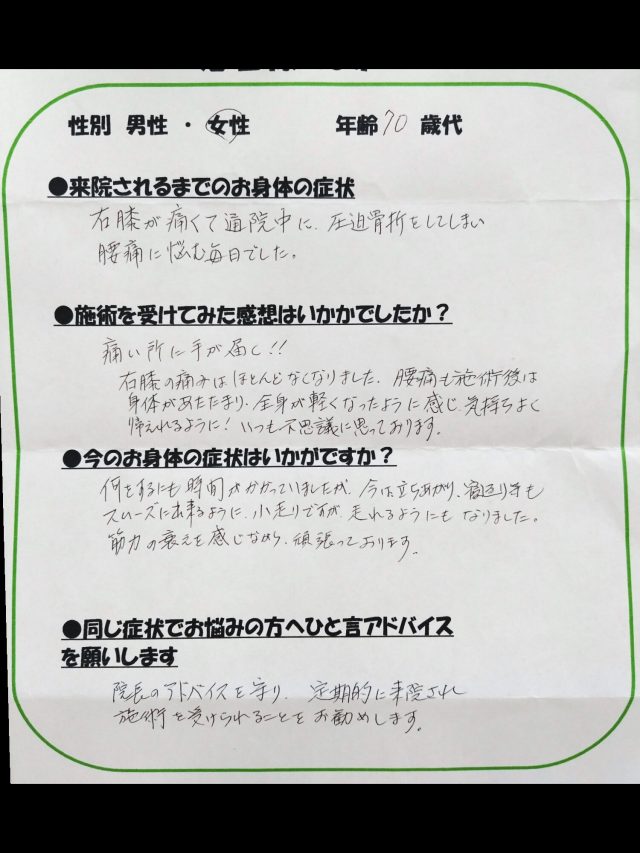 性別 男性 ・ 女性 年齢 70 歳代
●来院されるまでのお身体の症状
右膝が痛くて通院中に、圧迫骨折をしてしまい
腰痛に悩む毎日でした。
●施術を受けてみた感想はいかかでしたか？
痛い所に手が届く!!
右膝の痛みはほとんどなくなりました。腰痛も施術後は
身体があたたまり、全身が軽くなったように感じ、気持ちよく
帰えれるように! いつも不思議に思っております。
●今のお身体の症状はいかがですか？
何をするにも時間がかかっていましたが、今は立ちあがり、寝返り等も
スムーズに出来るように、小走りですが、走れるようにもなりました。
筋力の衰えを感じながら、頑張っております。
●同じ症状でお悩みの方へひと言アドバイス
を願いします
院長のアドバイスを守り、定期的に来院され
施術を受けられることをお勧めします。